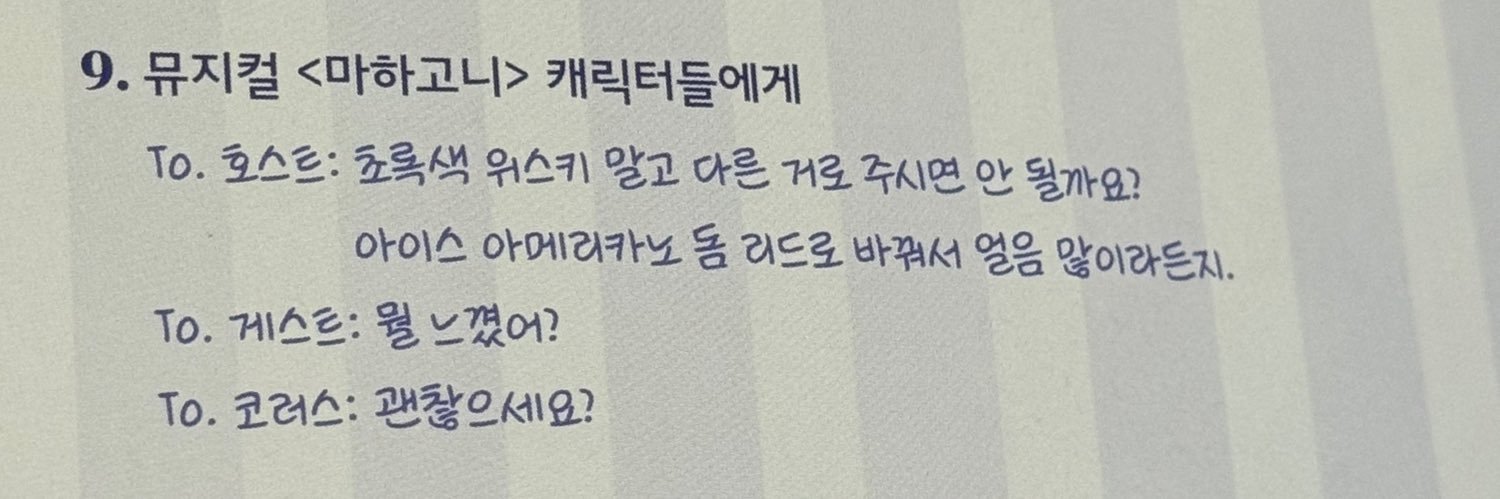 9. 뮤지컬 <마하고니> 캐릭터들에게
To. 호스트: 초록색 위스키 말고 다른 거로 주시면 안 될까요?
아이스 아메리카노 돔 리드로 바꿔서 얼음 많이라든지.
To. 게스트: 뭘 느꼈어?
To. 코러스: 괜찮으세요?